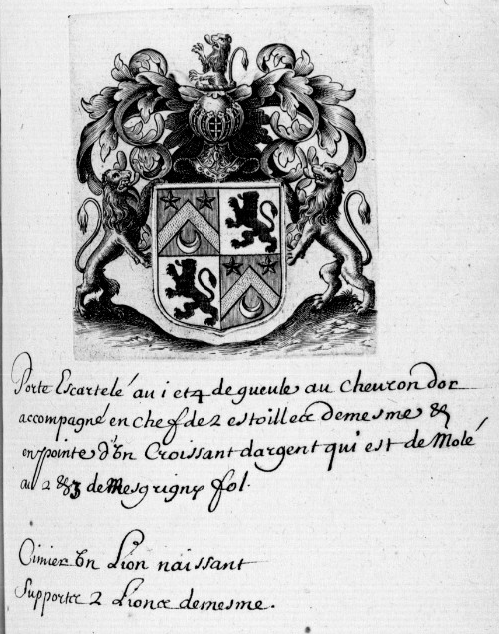 Porte Escartelé au i et 4 de gueule au cheuron dor
accompagné en chef de 2 estoillee demesme &
en pointe d'Vn Croissant dargent qui est de Molé
au 2 & 3 de Mesgrigny fol.
Cimier Vn Lion naissant
Supporter 2 Lionce demesme.